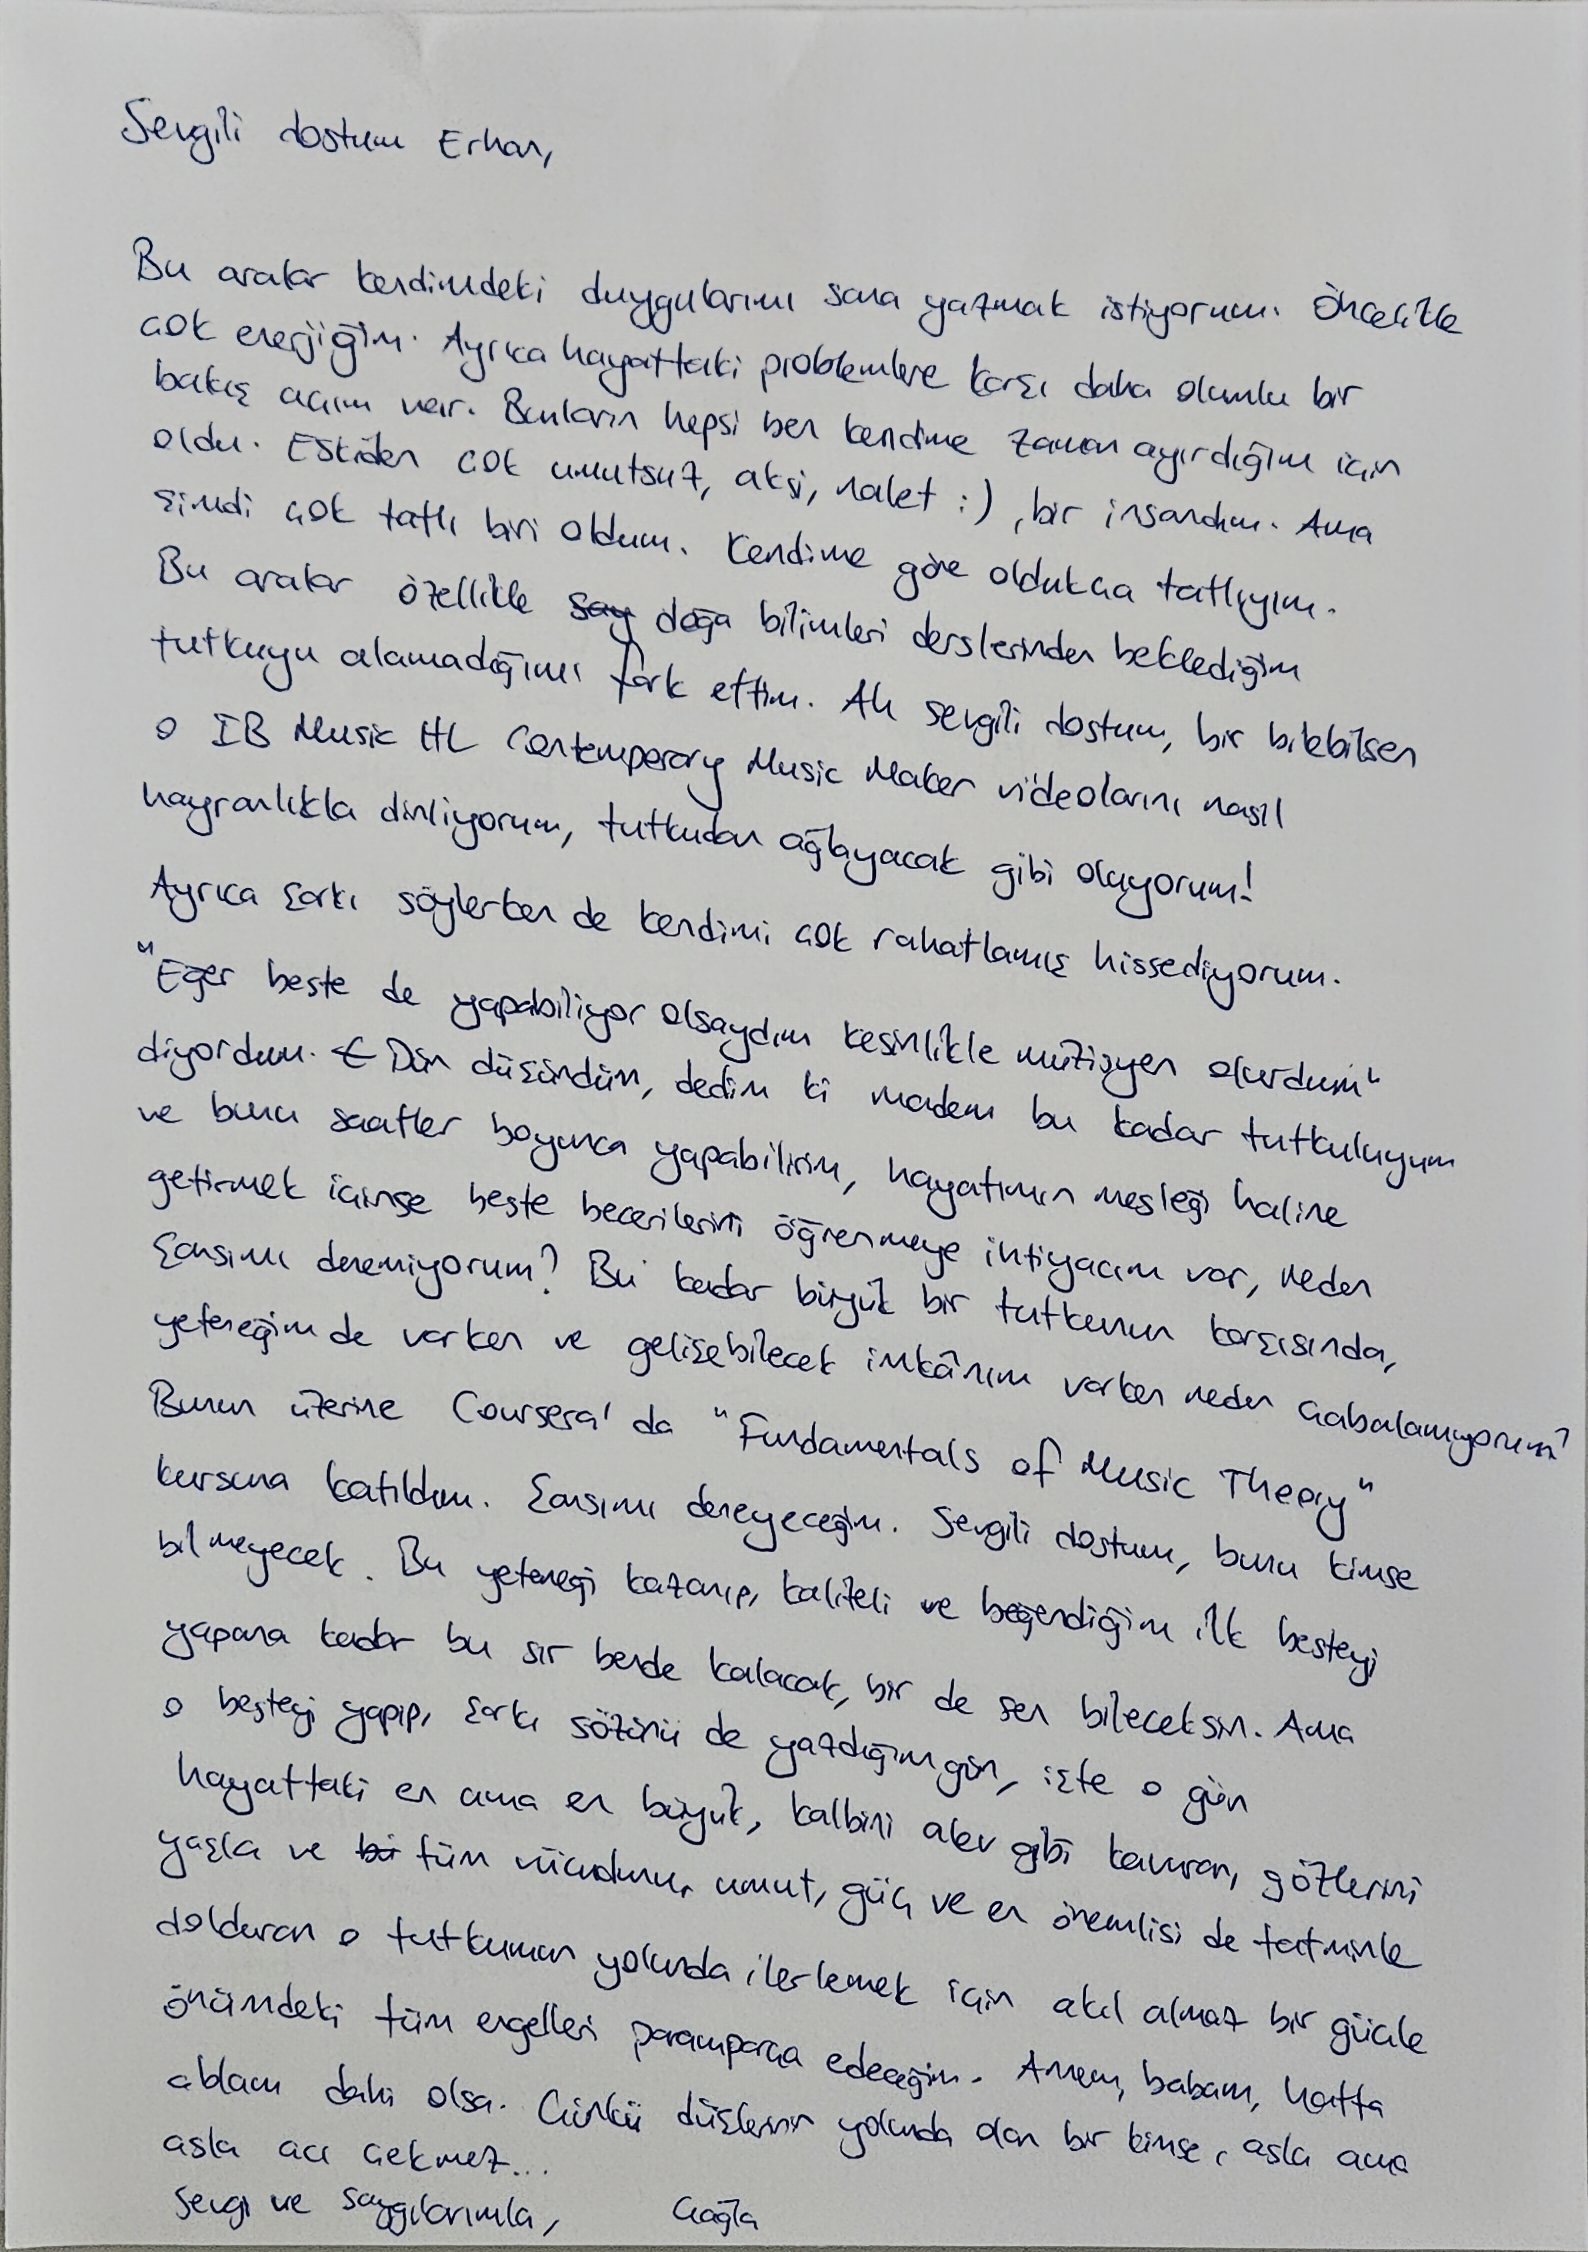 Sevgili dostum Erhan,
Bu aralar kendimdeki duygularımı sana yazmak istiyorum. Öncelikle
çok enerjiğim. Ayrıca hayattaki problemlere karşı daha olumlu bir
bakış açım var. Bunların hepsi ben kendime zaman ayırdığım için
oldu. Eskiden çok umutsuz, aksi, nalet :) , bir insandım. Ama
şimdi çok tatlı biri oldum. Kendime göre oldukça tatlıyım.
Bu aralar özellikle say doğa bilimleri derslerinden beklediğim
tutkuyu alamadığımı fark ettim. Ah sevgili dostum, bir bilebilsen
o IB Music HL Contemporary Music Maker videolarını nasıl
hayranlıkla dinliyorum, tutkudan ağlayacak gibi oluyorum!
Ayrıca şarkı söylerken de kendimi çok rahatlamış hissediyorum.
"Eğer beste de yapabiliyor olsaydım kesinlikle müzisyen olurdum"
diyordum. Dün düşündüm, dedim ki madem bu kadar tutkuluyum
ve bunu saatler boyunca yapabilirim, hayatımın mesleği haline
getirmek içinse beste becerilerini öğrenmeye ihtiyacım var, neden
şansımı denemiyorum? Bu kadar büyük bir tutkunun karşısında,
yeteneğim de varken ve gelişebilecek imkânım varken neden çabalamıyorum?
Bunun üzerine Coursera'da "Fundamentals of Music Theory"
kursuna katıldım. Şansımı deneyeceğim. Sevgili dostum, bunu kimse
bilmeyecek. Bu yeteneği kazanıp, kaliteli ve beğendiğim ilk besteyi
yapana kadar bu sır bende kalacak, bir de sen bileceksin. Ama
o besteyi yapıp, şarkı sözünü de yazdığım gün, işte o gün
hayattaki en ama en büyük, kalbini alev gibi kavuran, gözlerini
yaşla ve bü tüm vücudunu, umut, güç ve en önemlisi de tatminle
dolduran o tutkumun yolunda ilerlemek için akıl almaz bir güçle
önümdeki tüm engelleri paramparça edeceğim. Annem, babam, hatta
ablam dahi olsa. Çünkü düşlerinin yolunda olan bir kimse, asla ama
asla acı çekmez...
Sevgi ve saygılarımla, Çağla